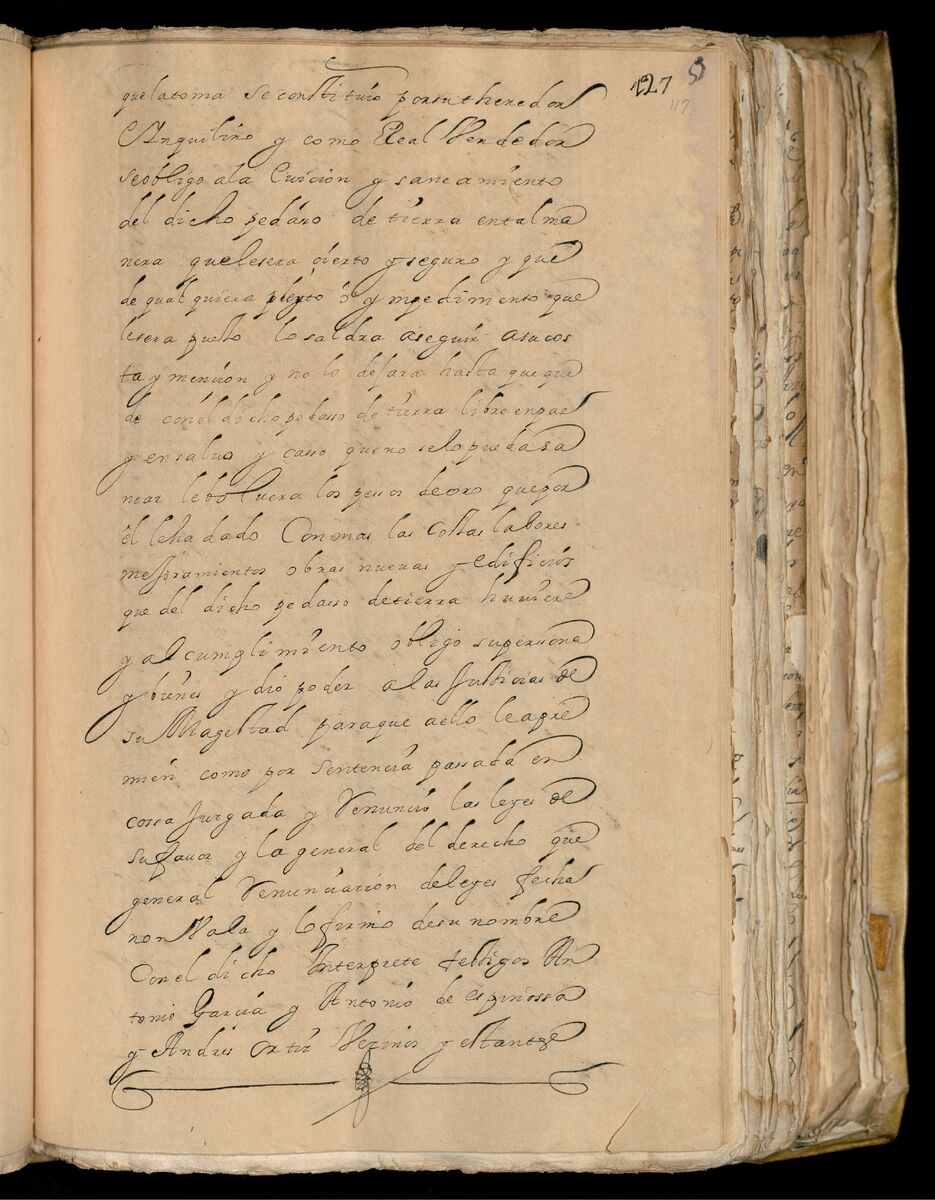 127
117
que la toma se constituio por su thenedor
E Ynquilino y como Real Vendedor
se obligo ala Euicion y saneamiento
del dicho pedaso de tierra en tal ma
nera que le sera cierto y seguro y que
de qual quiera pleyto o ympedimento que
le sera puesto lo saldra a seguir a su cos
ta y mencion y no lo desara hasta que que
de con el dicho pedasso de tierra libre en pas
y en saluo y casso que no se lo pueda sa
near le boluera los pessos de oro que por
el le ha dado Con mas las costas labores
mejoramientos obras nueuas y edificios
que del dicho pedasso de tierra huuiere
y al cumplimiento obligo su persona
y bienes y dio poder a las Justicias de
su Magestad para que a ello le apre
mien como por sentencia passada en
cossa Jurgada y Renuncio las leyes de
su fauor y la general del derecho que
general Renunciacion de leyes fecha
non Vala y lo firmo de su nombre
Con el dicho Interprete testigos An
tonio Garcia y Antonio de espinossa
y Andres Ortis Vezinos y estantes